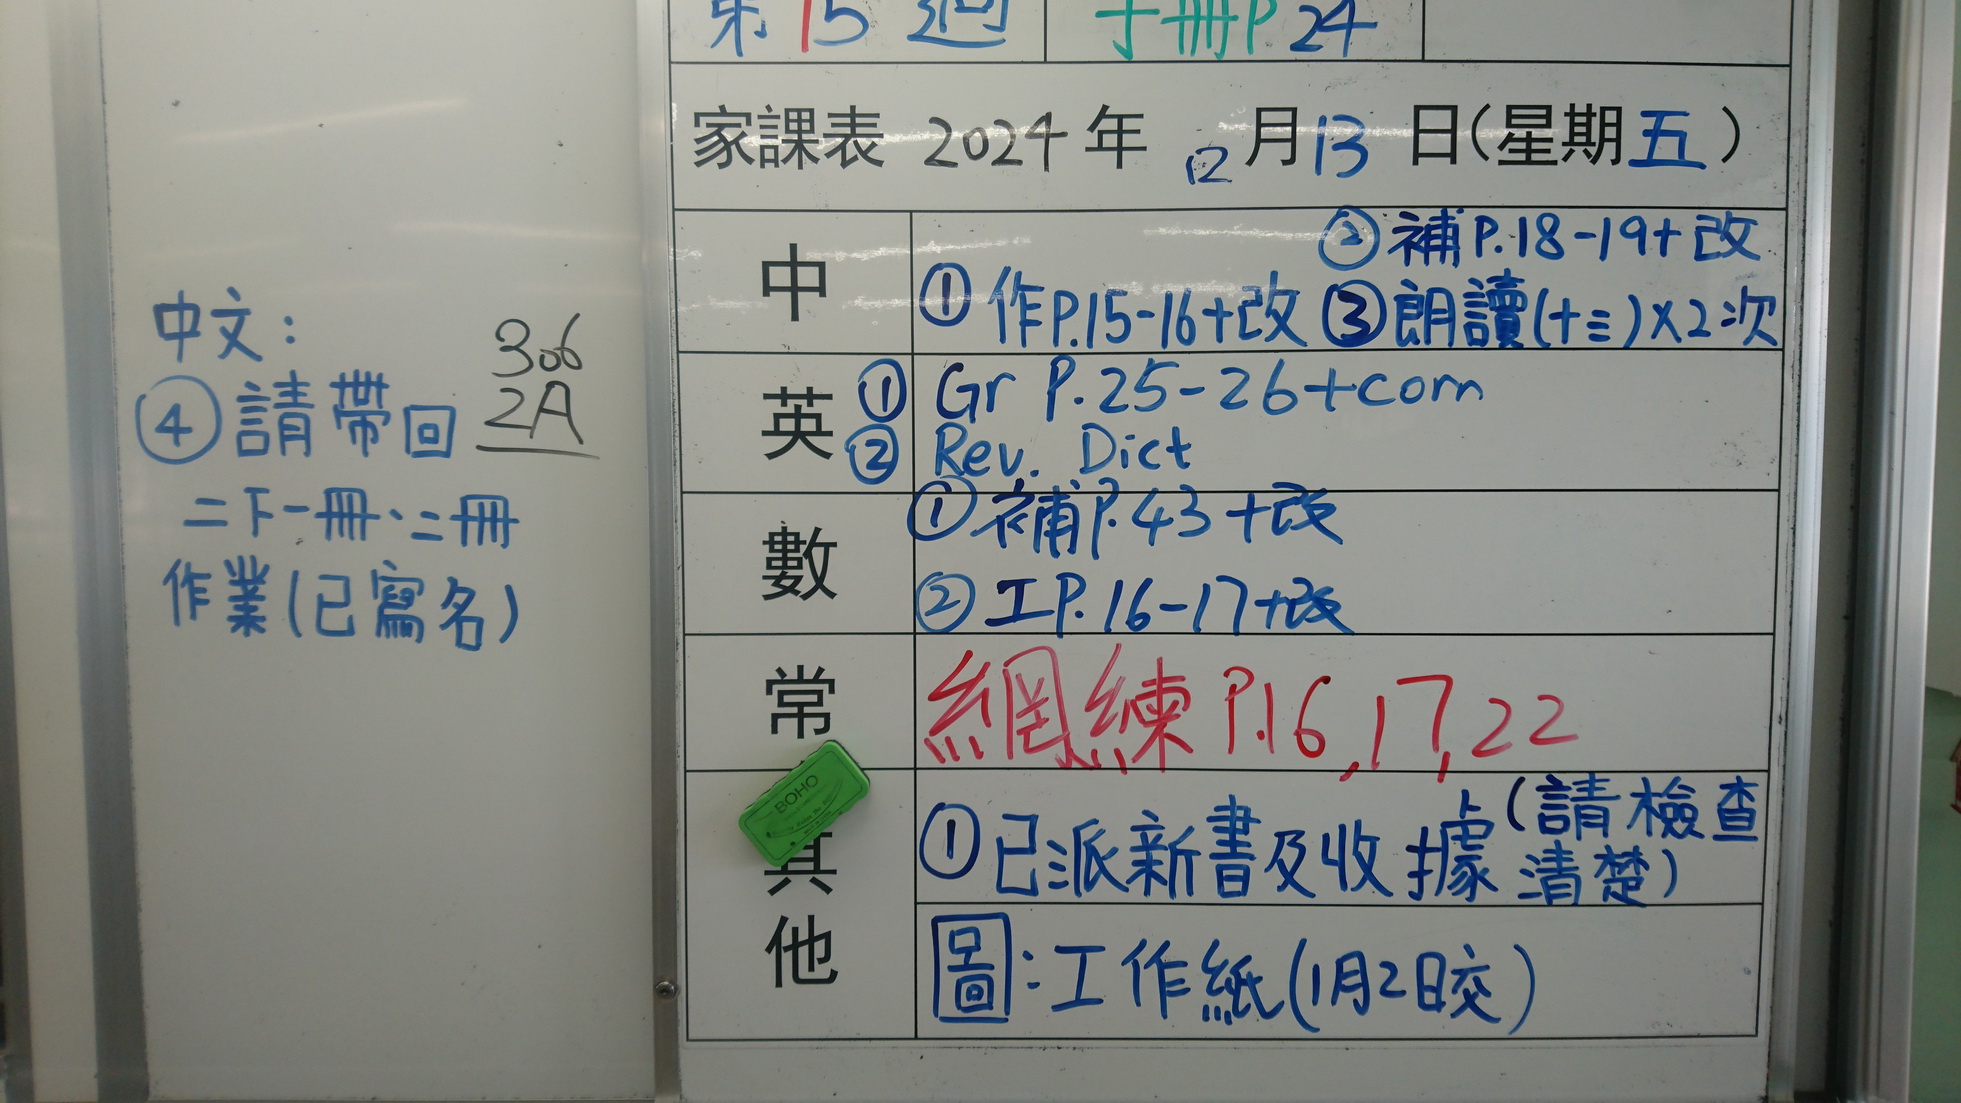 第15週 手冊P 24
家課表 2024年 12月13日(星期五)
中
②補P.18-19+改
①作P.15-16+改 ③朗讀(十三)×2次
英
①Gr P.25-26+corn
②Rev. Dict
數
①補P.43+改
②工P.16-17+改
常
網練P.16,17,22
其他
①已派新書及收據(請檢查
清楚)
圖:工作紙(1月2日交)
中文:
306
2A
④請帶回
二下一冊、二冊
作業(已寫名)
BOHO